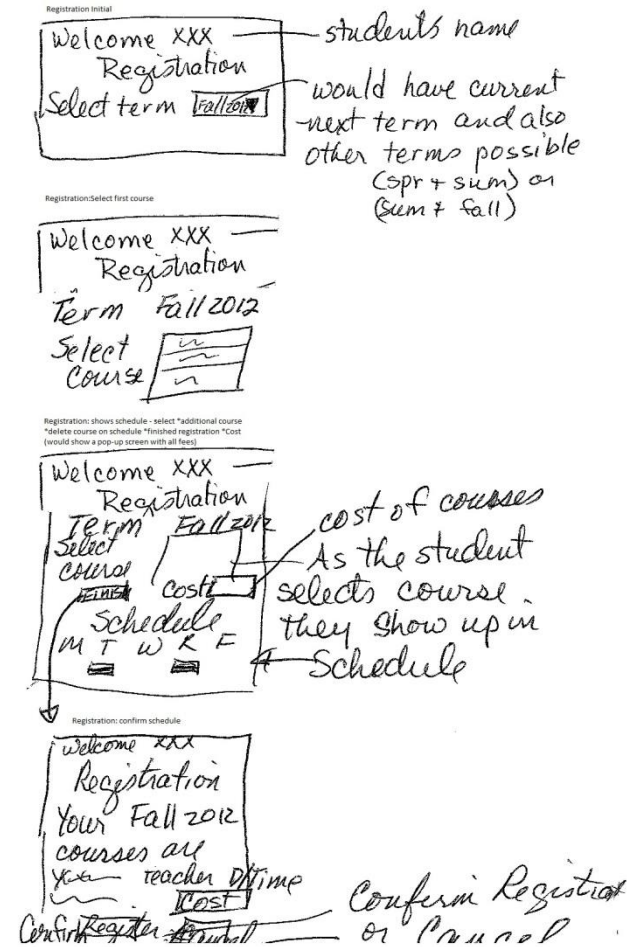 Registration Initial
Welcome XXX
students name
Registration
Select term Fall 2012
would have current
next term and also
other terms possible
(spr + sum) or
(sum + fall)
Registration:Select first course
Welcome XXX
Registration
Term Fall 2012
Select
Course
Registration: shows schedule - select *additional course
*delete course on schedule *finished registration *Cost
(would show a pop-up screen with all fees)
Welcome XXX
Registration
Term Fall 2012
Select
course
Finish
Cost
cost of courses
As the student
selects course
they show up in
Schedule
Schedule
M T W R F
Registration: confirm schedule
Welcome XXX
Registration
Your Fall 2012
courses are
teacher D/Time
Cost
Confirm Register
Confirm Registrat
or Cancel